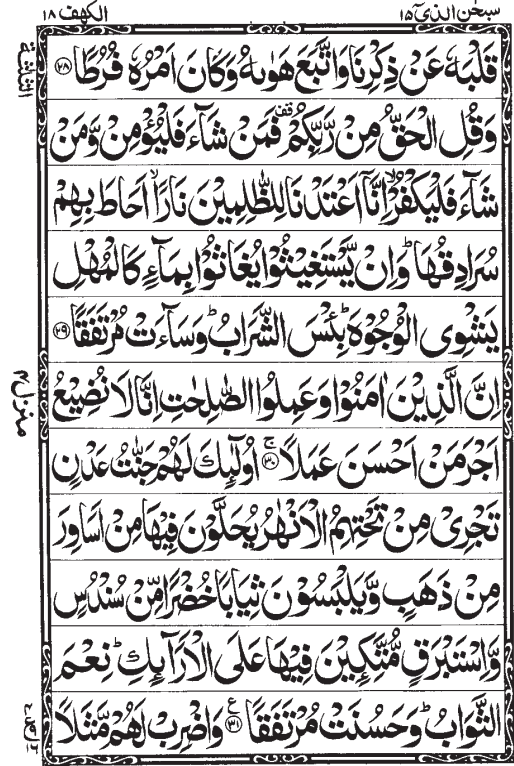 سبحٰن الذی ۱۵
الكهف ۱۸
قَلْبَهٗ عَنْ ذِكْرِنَا وَاتَّبَعَ هَوٰىهُ وَكَانَ اَمْرُهٗ فُرُطًا ﴿۲۸﴾
وَقُلِ الْحَقُّ مِنْ رَّبِّكُمْ قف فَمَنْ شَآءَ فَلْيُؤْمِنْ وَّمَنْ
شَآءَ فَلْيَكْفُرْ ۙ اِنَّاۤ اَعْتَدْنَا لِلظّٰلِمِيْنَ نَارًا ۙ اَحَاطَ بِهِمْ
سُرَادِقُهَا ؕ وَاِنْ يَّسْتَغِيْثُوْا يُغَاثُوْا بِمَآءٍ كَالْمُهْلِ
يَشْوِى الْوُجُوْهَ ؕ بِئْسَ الشَّرَابُ ؕ وَسَآءَتْ مُرْتَفَقًا ﴿۲۹﴾
اِنَّ الَّذِيْنَ اٰمَنُوْا وَعَمِلُوا الصّٰلِحٰتِ اِنَّا لَا نُضِيْعُ
اَجْرَ مَنْ اَحْسَنَ عَمَلًا ۚ ﴿۳۰﴾ اُولٰٓئِكَ لَهُمْ جَنّٰتُ عَدْنٍ
تَجْرِىْ مِنْ تَحْتِهِمُ الْاَنْهٰرُ يُحَلَّوْنَ فِيْهَا مِنْ اَسَاوِرَ
مِنْ ذَهَبٍ وَّيَلْبَسُوْنَ ثِيَابًا خُضْرًا مِّنْ سُنْدُسٍ
وَّاِسْتَبْرَقٍ مُّتَّكِـِٕيْنَ فِيْهَا عَلَى الْاَرَآئِكِ ؕ نِعْمَ
الثَّوَابُ ؕ وَحَسُنَتْ مُرْتَفَقًا ﴿۳۱﴾ ع وَاضْرِبْ لَهُمْ مَّثَلًا
الثلٰثة
منزل ۴